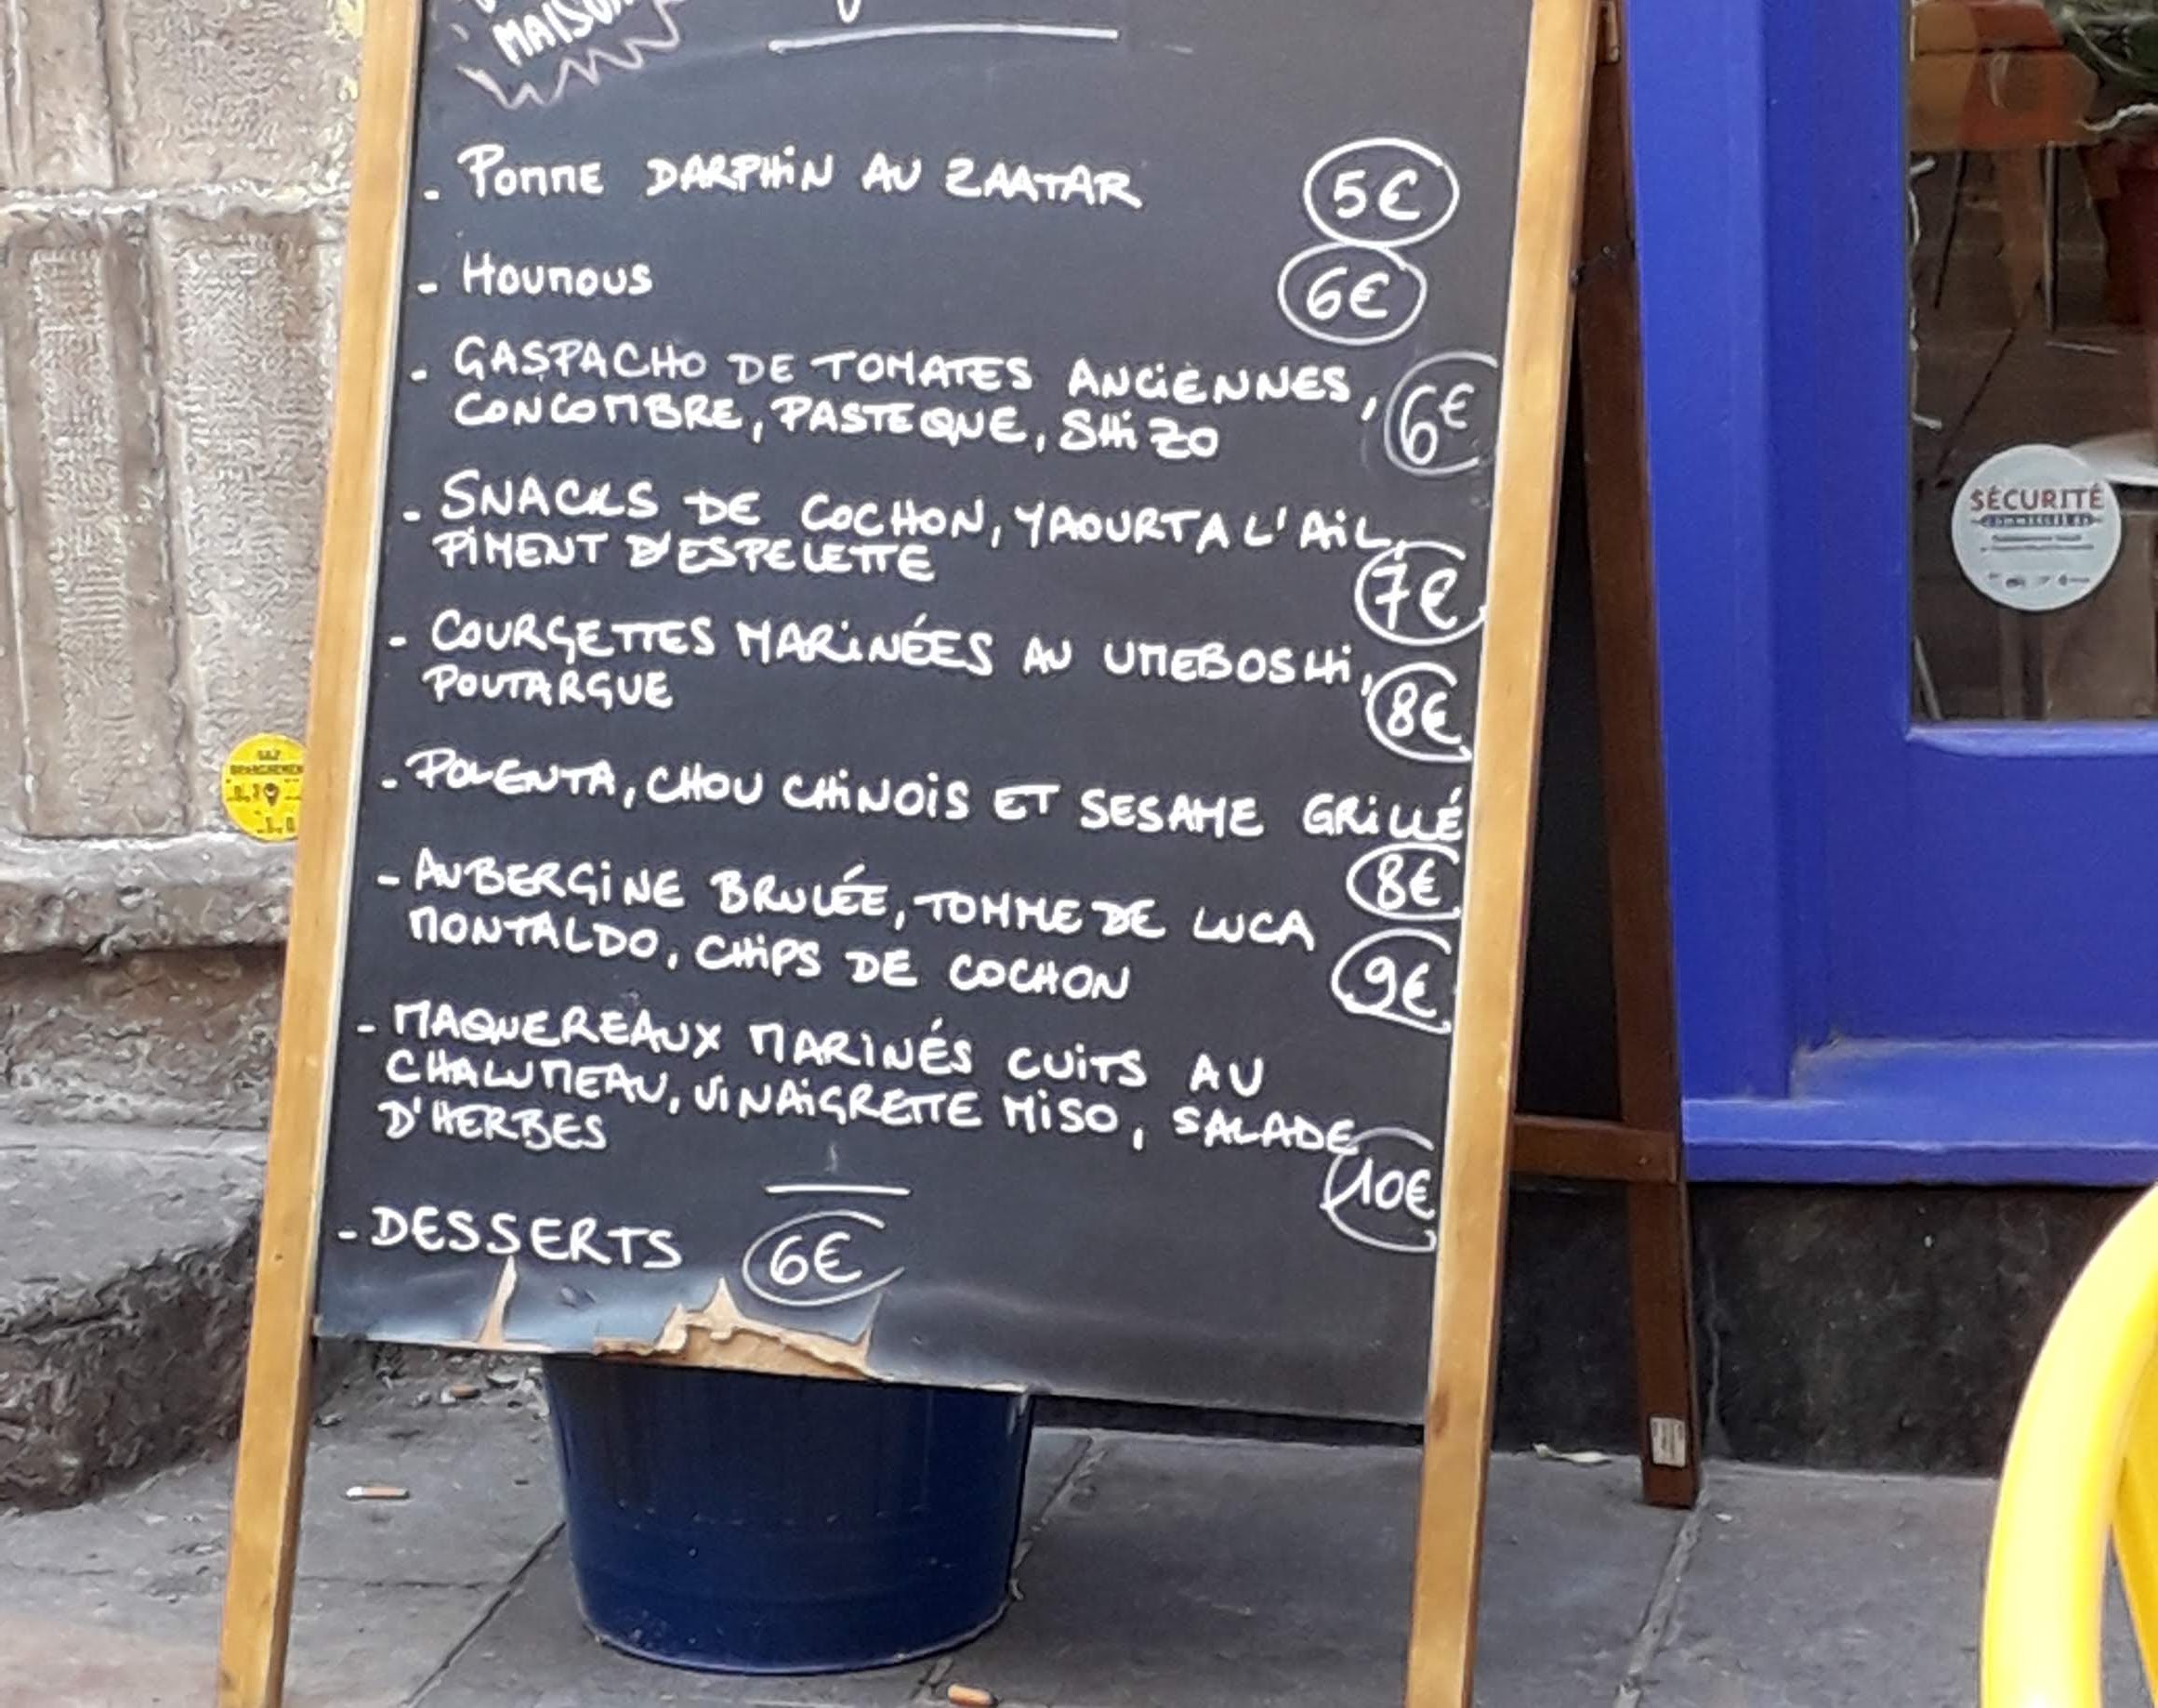 MAISON
- POMME DARPHIN AU ZAATAR 5€
- HOUMOUS 6€
- GASPACHO DE TOMATES ANCIENNES,
CONCOMBRE, PASTEQUE, SHIZO 6€
- SNACKS DE COCHON, YAOURT A L'AIL,
PIMENT D'ESPELETTE 7€
- COURGETTES MARINÉES AU UMEBOSHI,
POUTARGUE 8€
- POLENTA, CHOU CHINOIS ET SESAME GRILLÉ
8€
- AUBERGINE BRULÉE, TOMME DE LUCA
MONTALDO, CHIPS DE COCHON 9€
- MAQUEREAUX MARINÉS CUITS AU
CHALUMEAU, VINAIGRETTE MISO, SALADE
D'HERBES 10€
- DESSERTS 6€
SÉCURITÉ
GAZ
BRANCHEMENT